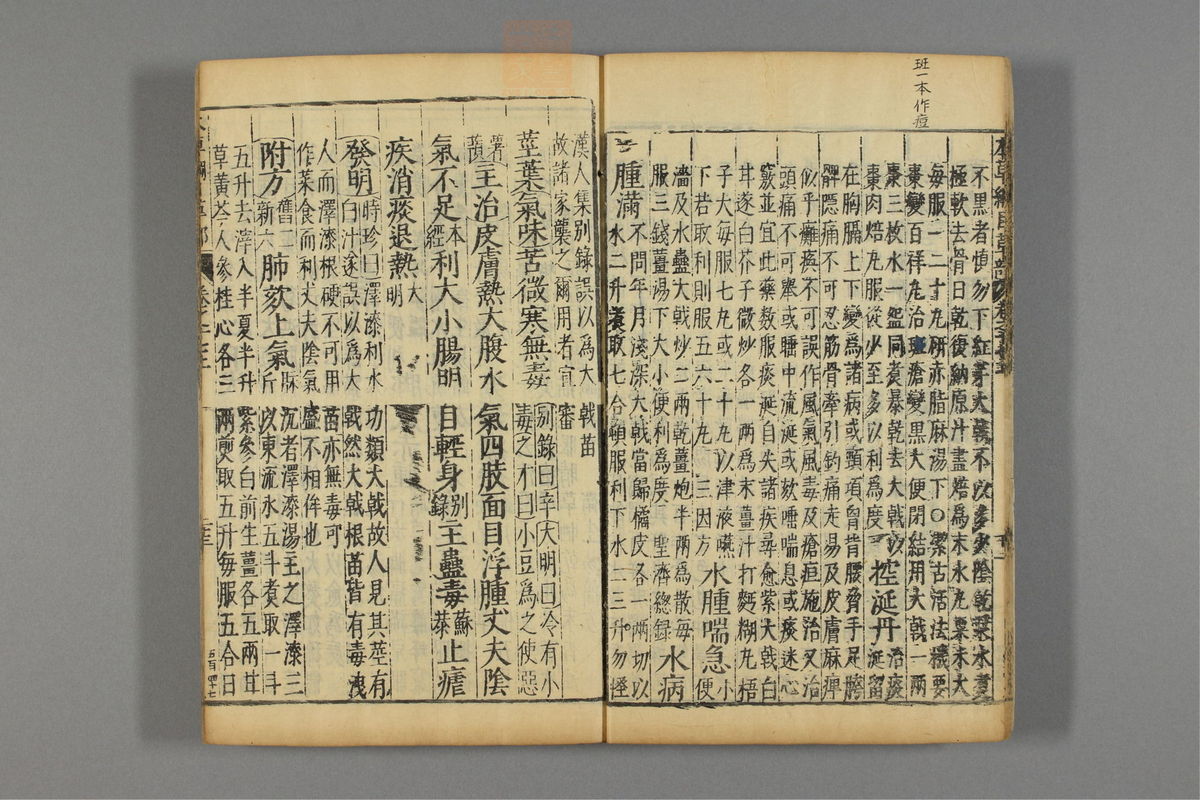 班一本作痘
不黑者慎勿下紅芽大戟不以多少陰乾漿水煑
極軟去骨日乾復納原汁盡焙爲末水丸粟米大
每服一二十丸研赤脂麻湯下○潔古活法機要
棗變百祥丸治斑瘡變黑大便閉結用大戟一兩
棗三枚水一盌同煑暴乾去大戟以
棗肉焙丸服從少至多以利爲度 控涎丹治痰涎留
在胸膈上下變爲諸病或頸項胷背腰脅手足胯
髀隱痛不可忍筋骨牽引釣痛走易及皮膚麻痺
似乎癱瘓不可誤作風氣風毒及瘡疽施治又治
頭痛不可舉或睡中流涎或欬唾喘息或痰迷心
竅並宜此藥数服痰涎自失諸疾尋愈紫大戟白
甘遂白芥子微炒各一兩爲末薑汁打麪糊丸梧
子大每服七丸或二十丸以津液嚥
下若取利則服五六十丸三因方 水腫喘急小便
濇及水蠱大戟炒二兩乾薑炮半兩爲散每
服三錢薑湯下大小便利爲度聖濟總錄 水病
腫滿不問年月淺深大戟當歸橘皮各一兩切以
水二升煑取七合頓服利下水二三升勿怪
漢人集別錄誤以爲大戟苗
故諸家襲之爾用者宜審
莖葉氣味苦微寒無毒別錄曰辛大明曰冷有小
毒之才曰小豆爲之使惡
薯蕷主治皮膚熱大腹水氣四肢面目浮腫丈夫陰
氣不足本經利大小腸明目輕身別錄主蠱毒蘇恭止瘧
疾消痰退熱大明
發明時珍曰澤漆利水功類大戟故人見其莖有
白汁遂誤以爲大戟然大戟根苗皆有毒洩
人而澤漆根硬不可用苗亦無毒可
作菜食而利丈夫陰氣甚不相侔也
附方舊二新六肺欬上氣脉沉者澤漆湯主之澤漆三
斤以東流水五斗煑取一斗
五升去滓入半夏半升紫參白前生薑各五兩甘
草黃芩人參桂心各三兩煎取五升每服五合日
五百四十七